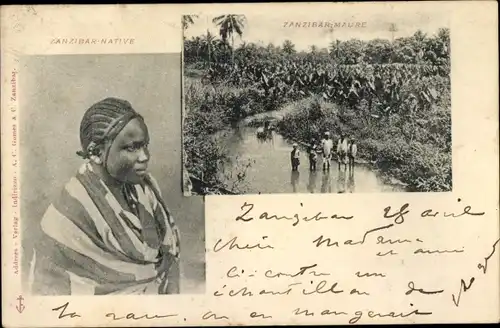 ZANZIBAR-NATIVE
ZANZIBAR-MAUBE
Address - Verlag - Indirizzo - A. C. Gomes & C. Zanzibar.
Zanzibar 28 avril
Chère Madame et amie
ci-contre un
échantillon de
la race, on en mangerait